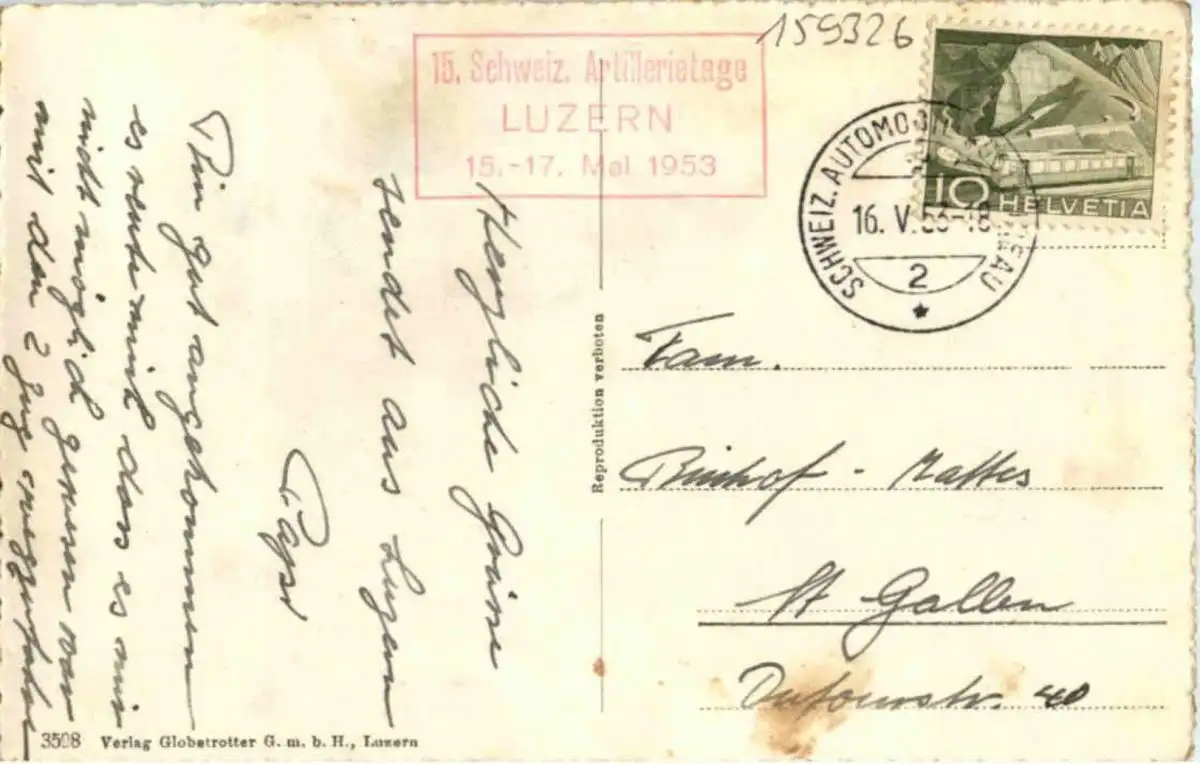 159326
15. Schweiz. Artillerietage
LUZERN
15.-17. Mai 1953
SCHWEIZ. AUTOMOBIL
16. V. 53-18
2
10 HELVETIA
Herzliche Grüsse
sendet aus Luzern
Papi
Bin gut angekommen
es reute mich dass es mir
nicht möglich gewesen war
mit dem 2 Zug
Reproduktion verboten
Fam.
St Gallen
Dufourstr. 40
3508 Verlag Globetrotter G. m. b. H., Luzern